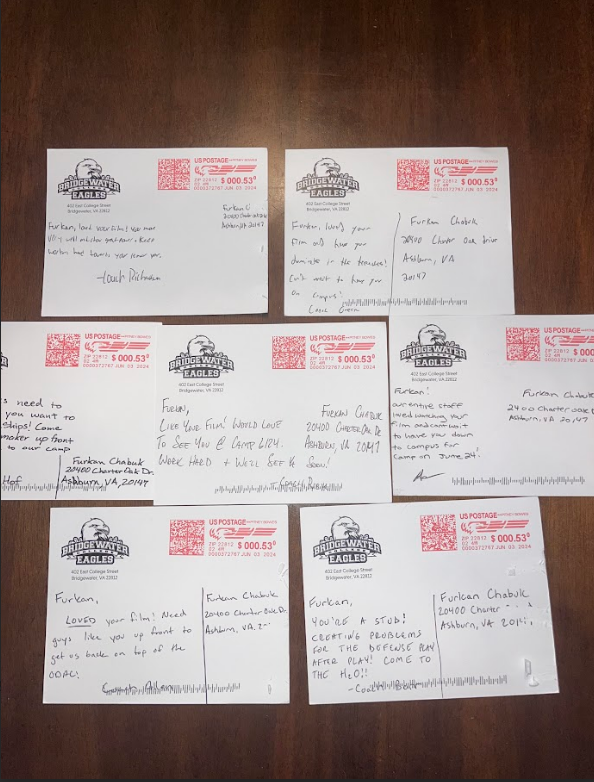 BRIDGEWATER
EAGLES
402 East College Street
Bridgewater, VA 22812
US POSTAGE
ZIP 22812 $ 000.53⁰
02 4M
0000372767 JUN 03 2024
Furkan
Ashburn 20147
Furkan, your film! You
will
work
Coach
BRIDGEWATER
EAGLES
402 East College Street
Bridgewater, VA 22812
US POSTAGE
ZIP 22812 $ 000.53⁰
02 4M
0000372767 JUN 03 2024
Furkan, loved your
film and how you
dominate in the trenches!
Can't wait to have you
on campus!
Coach
Furkan Chabuk
20400 Charter Oak Drive
Ashburn, VA
20147
US POSTAGE
ZIP 22812 $ 000.53⁰
02 4M
0000372767 JUN 03 2024
s need to
you want to
ships! Come
up front
to our camp
Hof
Furkan Chabuk
20400 Charter Oak Dr.
Ashburn, VA, 20147
BRIDGEWATER
EAGLES
402 East College Street
Bridgewater, VA 22812
US POSTAGE
ZIP 22812 $ 000.53⁰
02 4M
0000372767 JUN 03 2024
FURKAN,
LIKE YOUR FILM! WOULD LOVE
TO SEE YOU @ CAMP 6/24.
WORK HARD + WE'LL SEE YA SOON!
- COACH
FURKAN CHABUK
20400 CHARTER OAK DR
ASHBURN, VA 20147
BRIDGEWATER
EAGLES
402 East College Street
Bridgewater, VA 22812
US POSTAGE
ZIP 22812 $ 000.53
02 4M
0000372767 JUN 03
Furkan!
our entire staff
loved watching your
film and cant wait
to have you down
to campus for
camp on June 24!
Furkan Chabuk
2400 Charter Oak D
Ashburn, VA 20147
BRIDGEWATER
EAGLES
402 East College Street
Bridgewater, VA 22812
US POSTAGE
ZIP 22812 $ 000.53⁰
02 4M
0000372767 JUN 03 2024
Furkan,
LOVED your film! Need
guys like you up front to
get us back on top of the
ODAC!
Coach Allen
Furkan Chabuk
20400 Charter Oak Dr.
Ashburn, VA, 2
BRIDGEWATER
EAGLES
402 East College Street
Bridgewater, VA 22812
US POSTAGE
ZIP 22812 $ 000.53⁰
02 4M
0000372767 JUN 03 2024
Furkan,
YOU'RE A STUD!
CREATING PROBLEMS
FOR THE DEFENSE PLAY
AFTER PLAY! COME TO
THE H2O!!
- Coach
Furkan Chabuk
20400 Charter
Ashburn, VA 20147